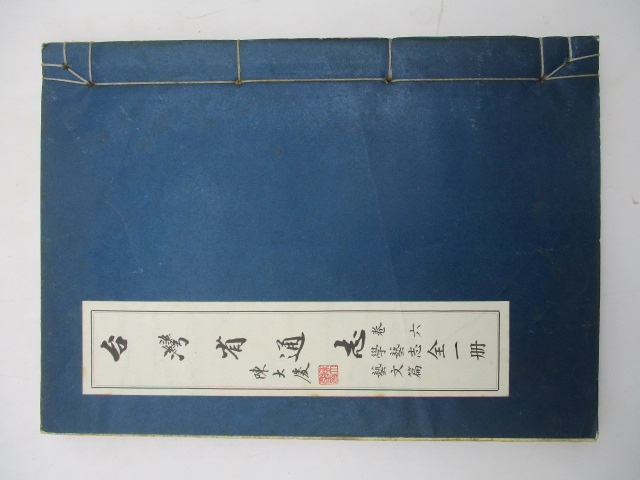 台灣省通志
卷六
學藝志
藝文篇
全一册
陳大慶